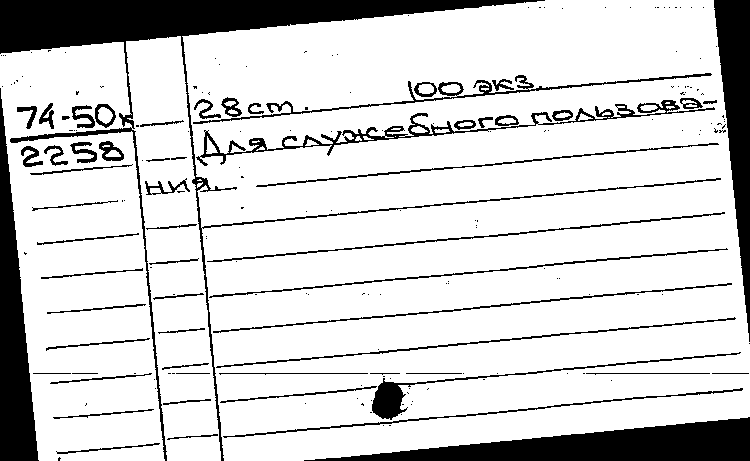 74-50к 28 cm. 100 экз.
2258 Для служебного пользова-
ния.